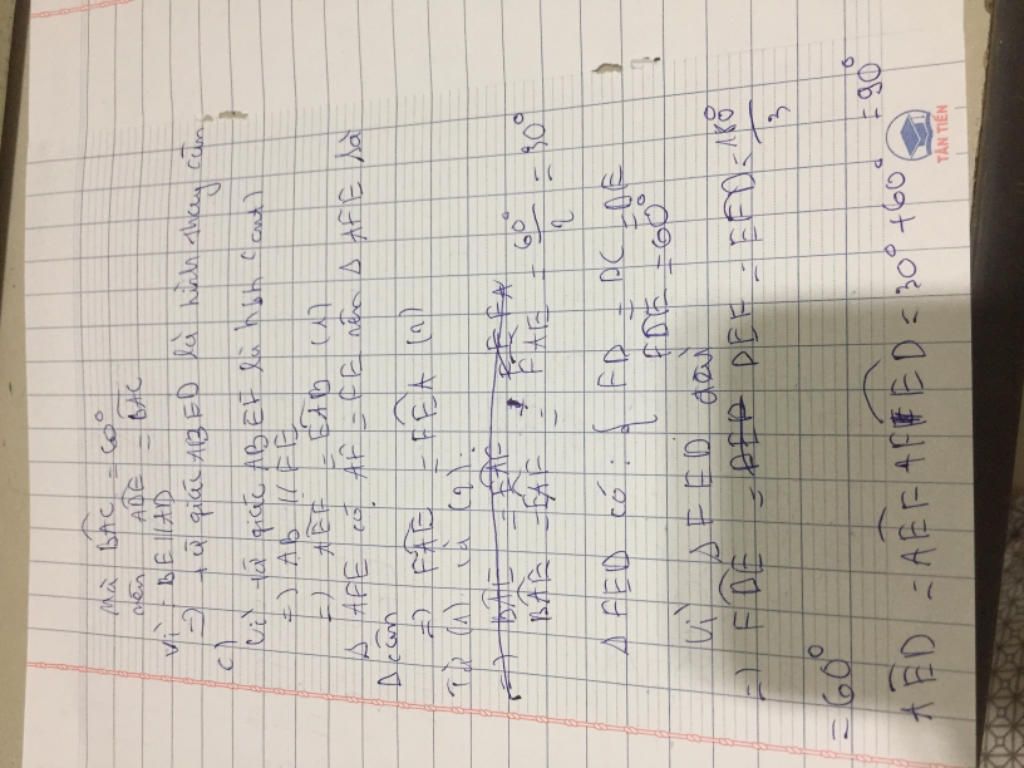 Mà BAC = 60°
nên ADE = BAC
Vì BE // AD
=) tứ giác ABED là hình thang cân
c)
Vì tứ giác ABEF là hbh (cmt)
=) AB // FE
=) AEF = EAB (1)
Δ AFE có AF = FE nên Δ AFE là
Δ cân
=) FAE = FEA (2)
Từ (1) và (2):
=) BAE = EAF
BAE = EAF = FAE = 60°/2 = 30°
Δ FED có: { FD = DC = DE
FDE = 60°
Vì Δ FED đều
=) FDE = DEF = EFD = 180°/3
= 60°
AED = AEF + FED = 30° + 60° = 90°
TÂN TIẾN